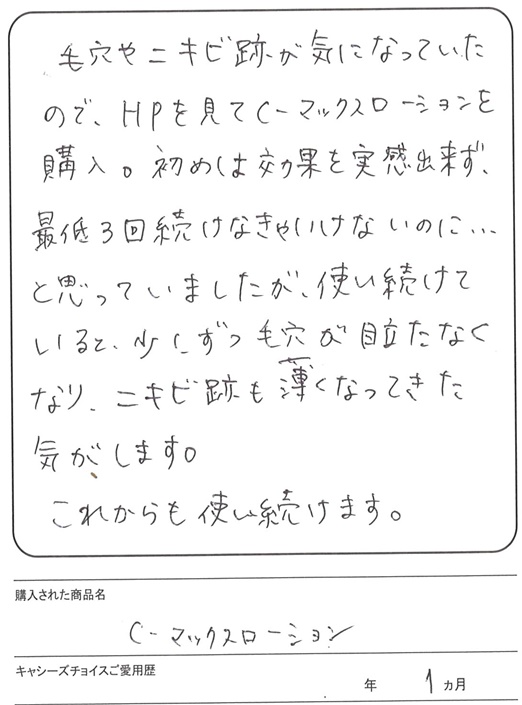 毛穴やニキビ跡が気になっていた
ので、HPを見てC-マックスローションを
購入。初めは効果を実感出来ず、
最低3回続けなきゃいけないのに…
と思っていましたが、使い続けて
いると、少しずつ毛穴が目立たなく
なり、ニキビ跡も薄くなってきた
気がします。
これからも使い続けます。
購入された商品名
C-マックスローション
キャシーズチョイスご愛用歴
年 1 カ月